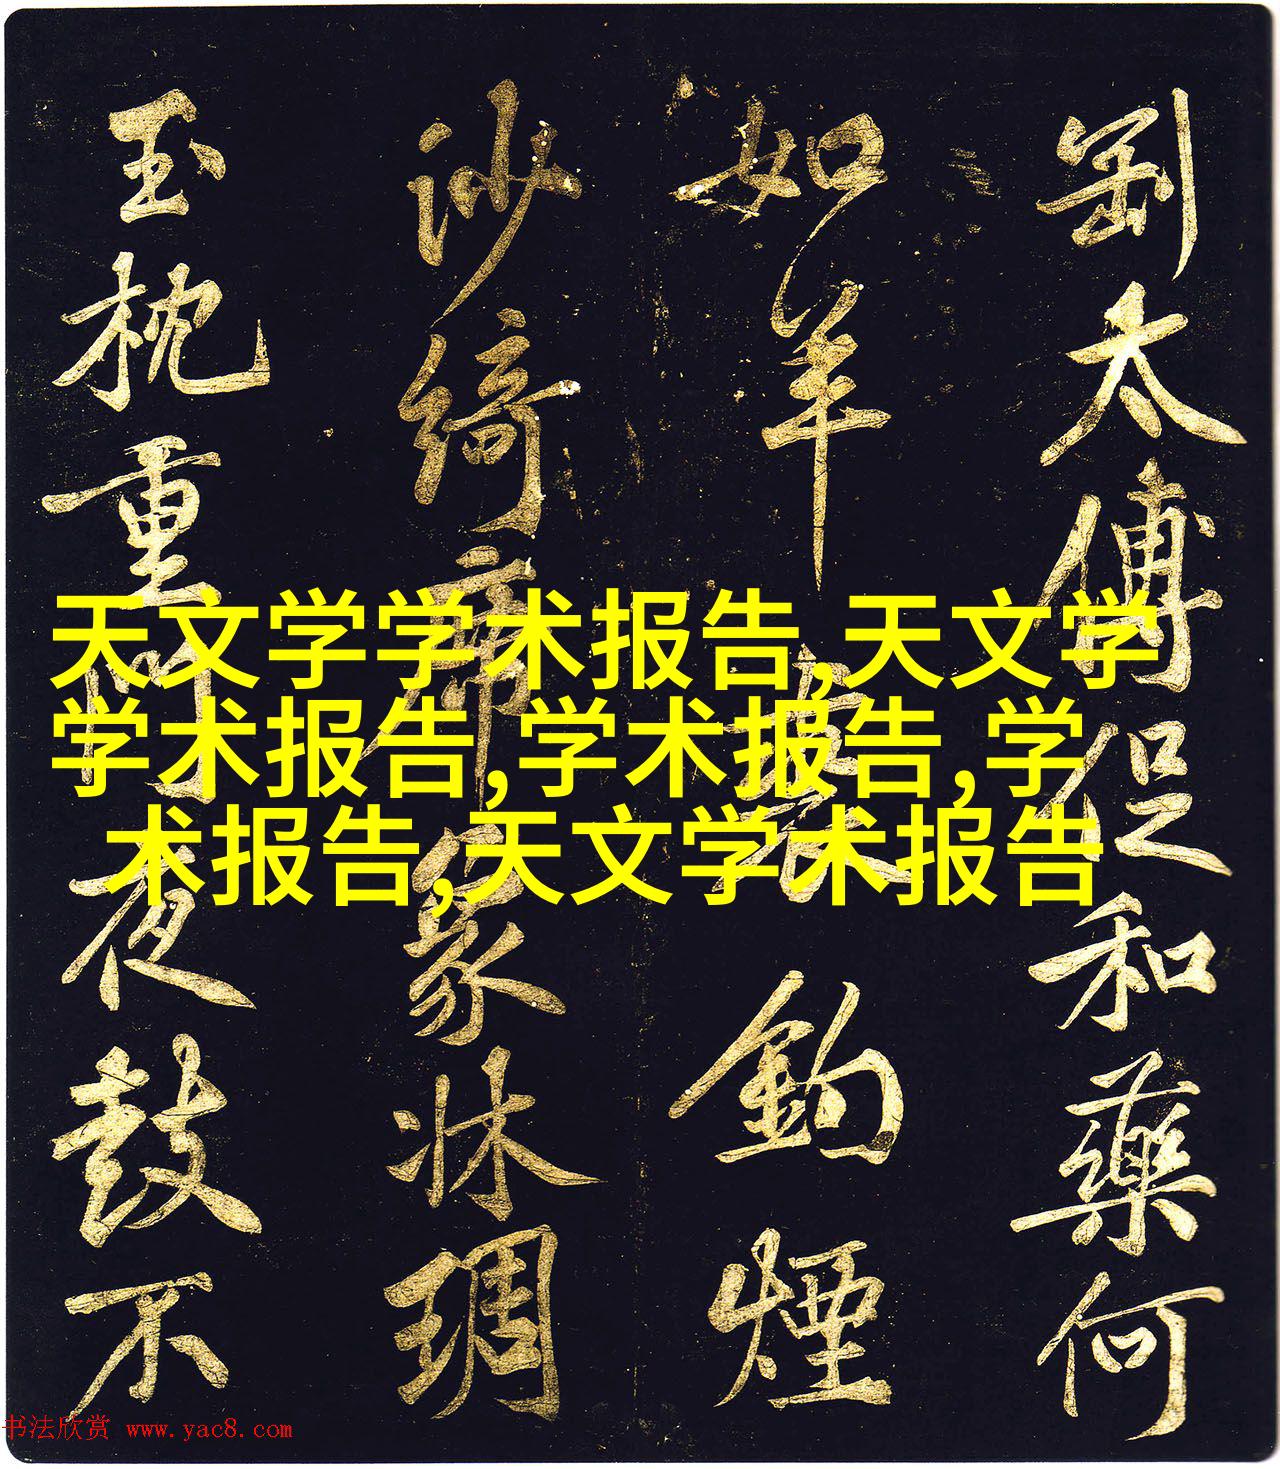 太傅促和藥何
如羊鉤煙
沙綺席象牀琱
玉枕重門夜鼓不
天文学学术报告,天文学
学术报告,学术报告,学
术报告,天文学术报告
书法欣赏 www.yac8.com